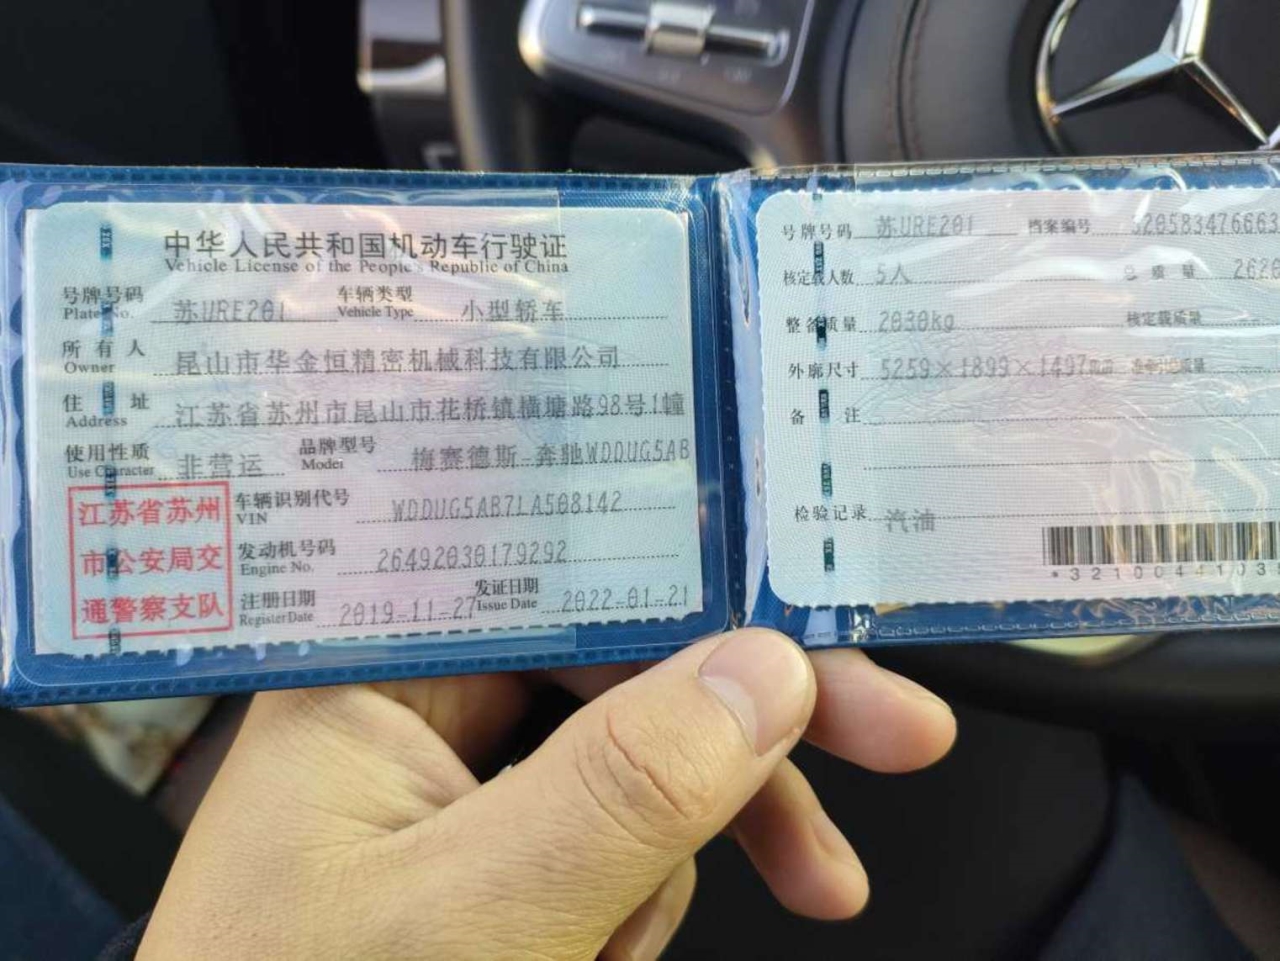 中华人民共和国机动车行驶证
Vehicle License of the People's Republic of China
号牌号码 苏URE201 车辆类型 小型轿车
Plate No. Vehicle Type
所有人 昆山市华金恒精密机械科技有限公司
Owner
住址 江苏省苏州市昆山市花桥镇横塘路98号1幢
Address
使用性质 非营运 品牌型号 梅赛德斯-奔驰WDDUG5AB
Use Character Model
车辆识别代号 WDDUG5AB7LA508142
VIN
发动机号码 26492030179292
Engine No.
注册日期 2019-11-27 发证日期 2022-01-21
Register Date Issue Date
江苏省苏州
市公安局交
通警察支队
号牌号码 苏URE201 档案编号 320583476663
核定载人数 5人 总质量 2620
整备质量 2030kg 核定载质量
外廓尺寸 5259×1899×1497mm 准牵引总质量
备注
检验记录 汽油
*321004410 3